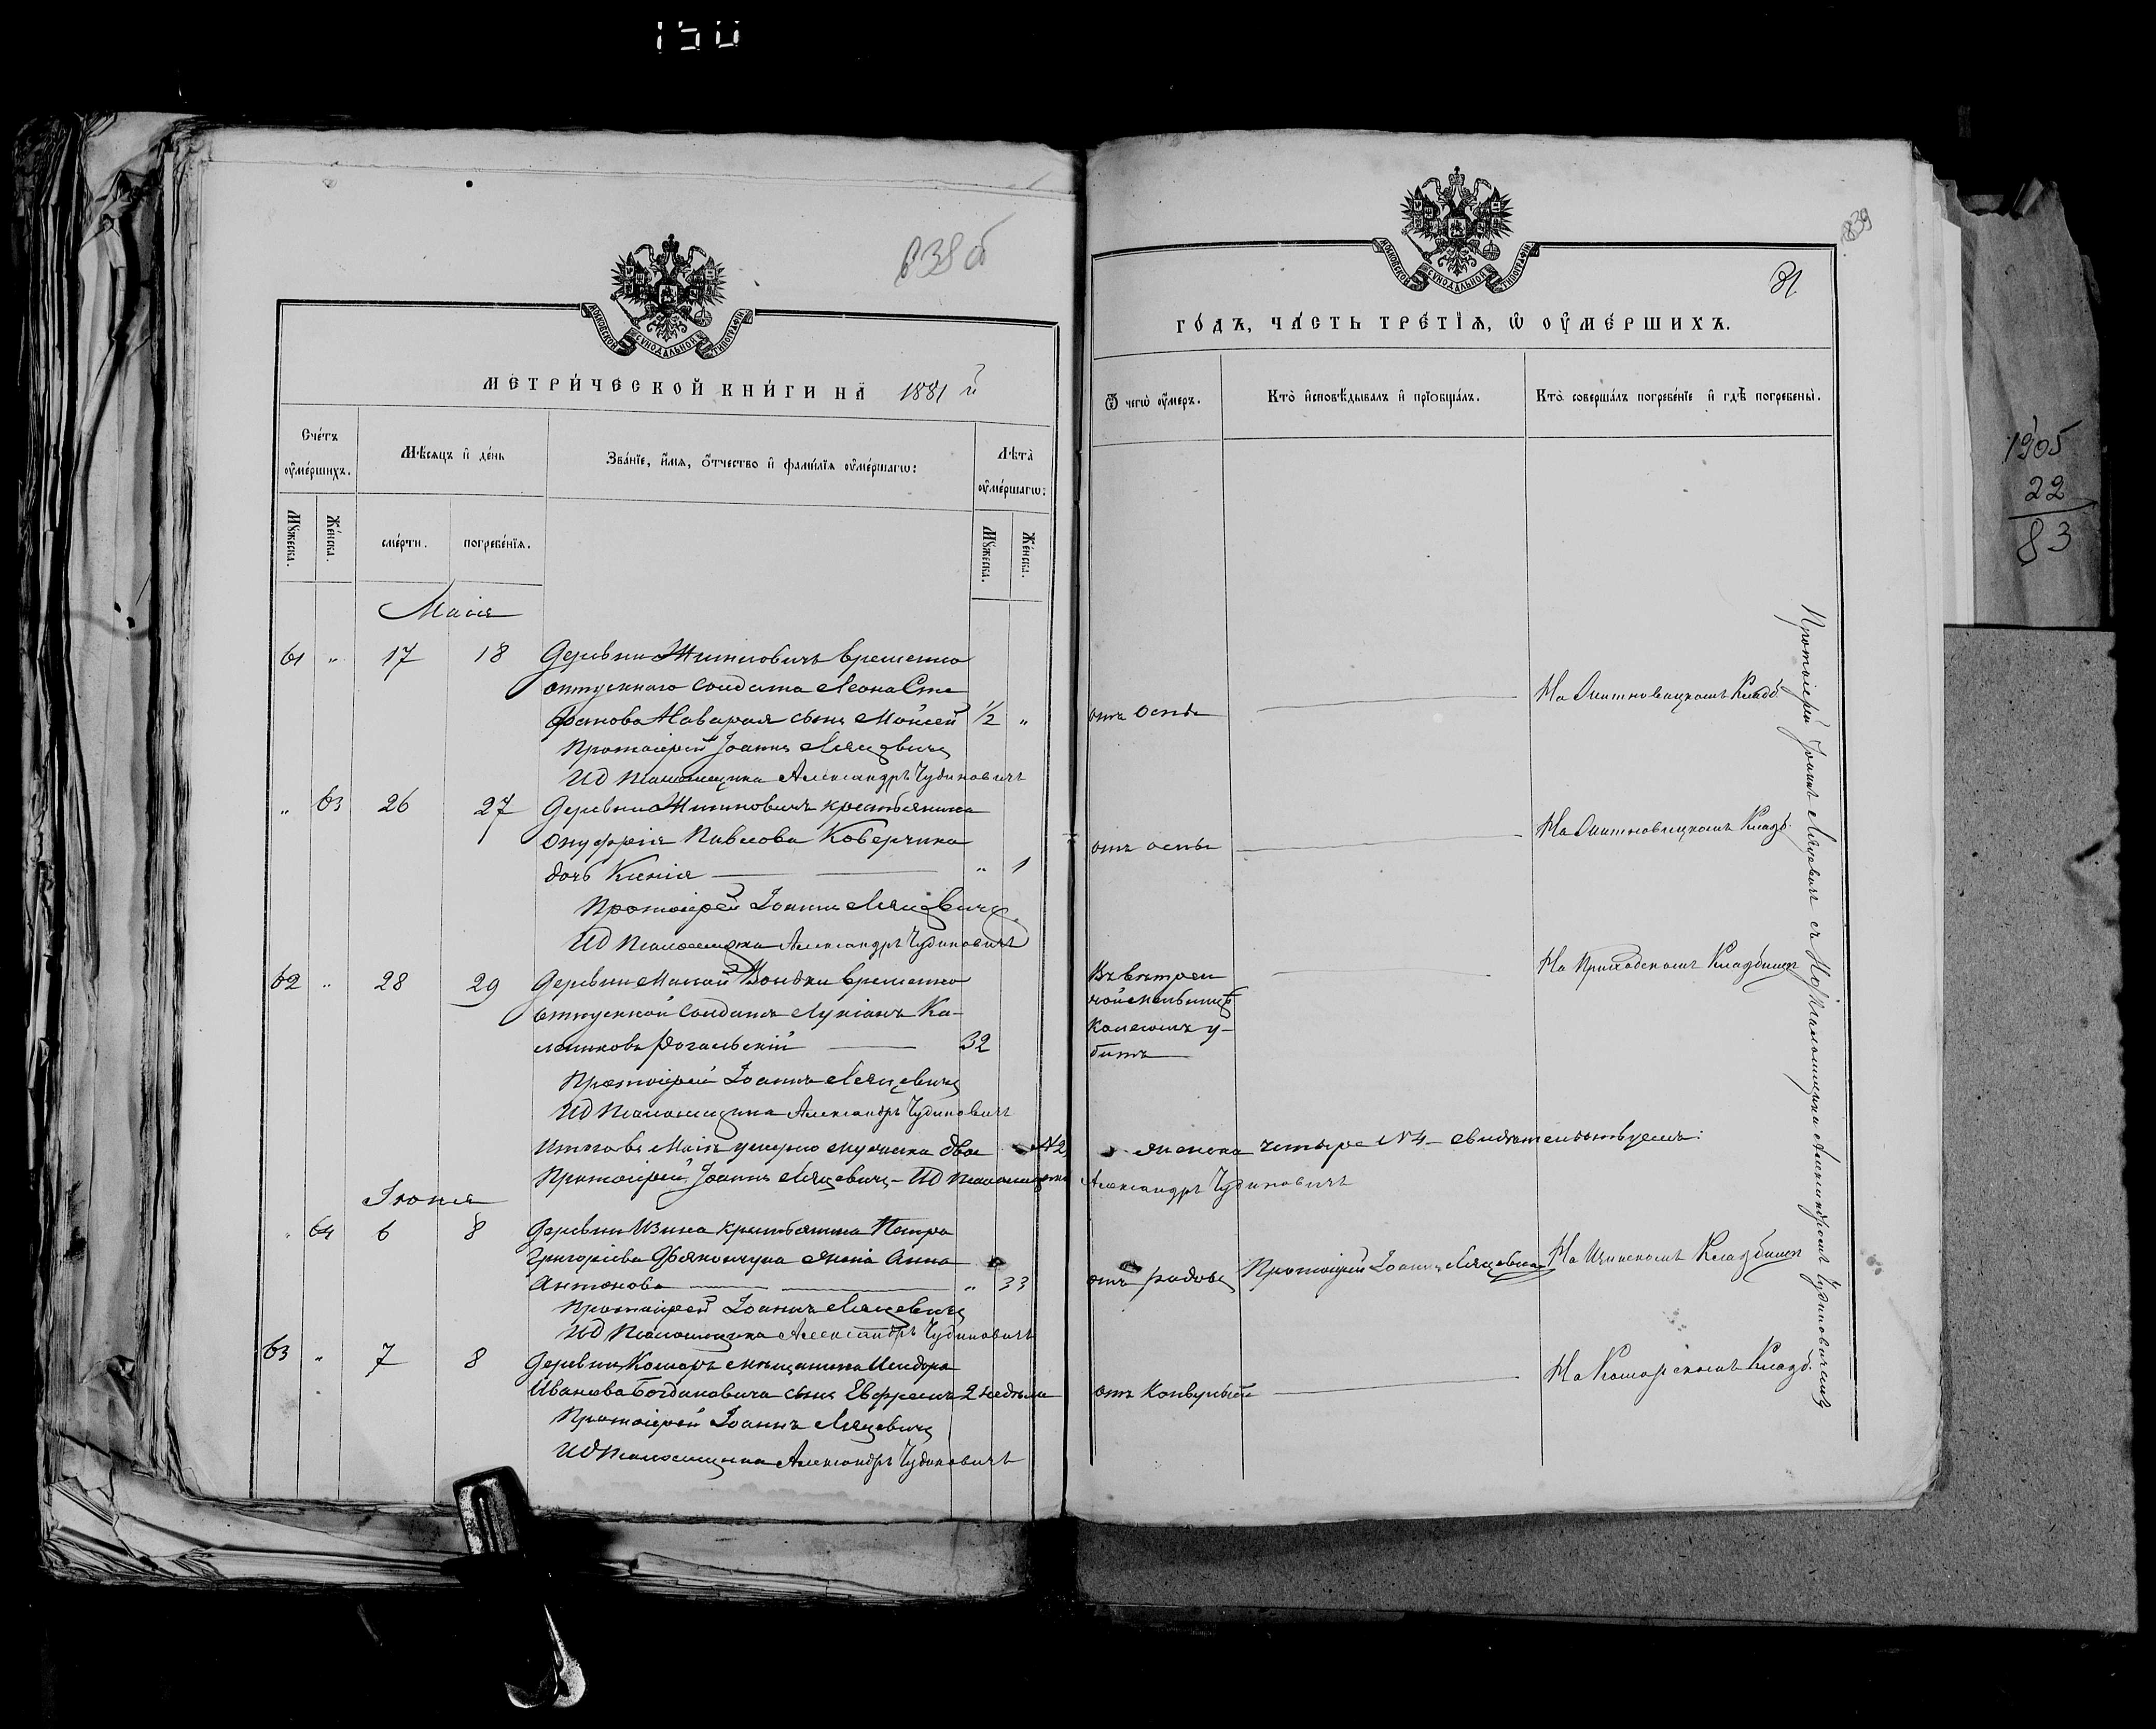 150
838 об
МОСКОВСКОЙ СУНОДАЛЬНОЙ ТИПОГРАФІИ
МЕТРИ́ЧЕСКОЙ КНИ́ГИ НА 1881 й
Сче́тъ оу҆ме́ршихъ.
Мѣ́сяцъ и҆ де́нь
Зва́нїе, и҆́мя, ѻ҆́тчество и҆ фами́лїя оу҆ме́ршагѡ:
Лѣ́та̀ оу҆ме́ршагѡ:
Мꙋ́жеска.
Же́нска.
сме́рти.
погребе́нїя.
Мꙋ́жеска.
Же́нска.
Маія
61 " 17 18 Деревни Житновичъ временно
отпускнаго солдата Леона Сте
фанова Наварая сынъ Моисей 1/2 "
Протоіерей Іоаннъ Ляцевичъ
ИД Псаломщика Александръ Чудиновичъ
" 63 26 27 Деревни Житновичъ крестьянина
Онуфрія Павлова Коверчика
дочь Ксенія " 1
Протоіерей Іоаннъ Ляцевичъ
ИД Псаломщика Александръ Чудиновичъ
62 " 28 29 Деревни Малой Вольки временно
отпускной солдатъ Лукіанъ Ка-
линковъ Рогальскій 32
Протоіерей Іоаннъ Ляцевичъ
ИД Псаломщика Александръ Чудиновичъ
Итого въ Маіѣ умерло мужеска два №2
Протоіерей Іоаннъ Ляцевичъ - ИД Псаломщика
Іюня
" 64 6 8 Деревни Изина крестьянина Петра
Григоріева жена Анна
Антонова " 33
Протоіерей Іоаннъ Ляцевичъ
ИД Псаломщика Александръ Чудиновичъ
63 " 7 8 Деревни Комаръ мѣщанина Исидора
Иванова Богдановича сынъ Евфремъ 2 недѣли
Протоіерей Іоаннъ Ляцевичъ
ИД Псаломщика Александръ Чудиновичъ
839
31
МОСКОВСКОЙ СУНОДАЛЬНОЙ ТИПОГРАФІИ
ГО́ДЪ, ЧА́СТЬ ТРЕ́ТІѦ, Ѡ҆ ОУ҆МЕ́РШИХЪ.
Ѿ чегѡ̀ оу҆́меръ.
Кто̀ и҆сповѣ́дывалъ и҆ прїѻбща́лъ.
Кто̀ соверша́лъ погребе́нїе и҆ гдѣ̀ погребены̀.
отъ оспы
На Житновицкомъ Кладб.
отъ оспы
На Житновицкомъ Кладб.
Въ вѣтрян
ой мельницѣ
колесомъ у-
битъ
На Приходскомъ Кладбищѣ
женска четыре №4 - свидѣтельствуемъ:
Александръ Чудиновичъ
отъ родовъ
Протоіерей Іоаннъ Ляцевичъ
На Изинскомъ Кладбищѣ
отъ конвульсій
На Комарскомъ Кладб.
Протоіерей Іоаннъ Ляцевичъ съ И.д. Псаломщика Александромъ Чудиновичемъ
1905
22
83